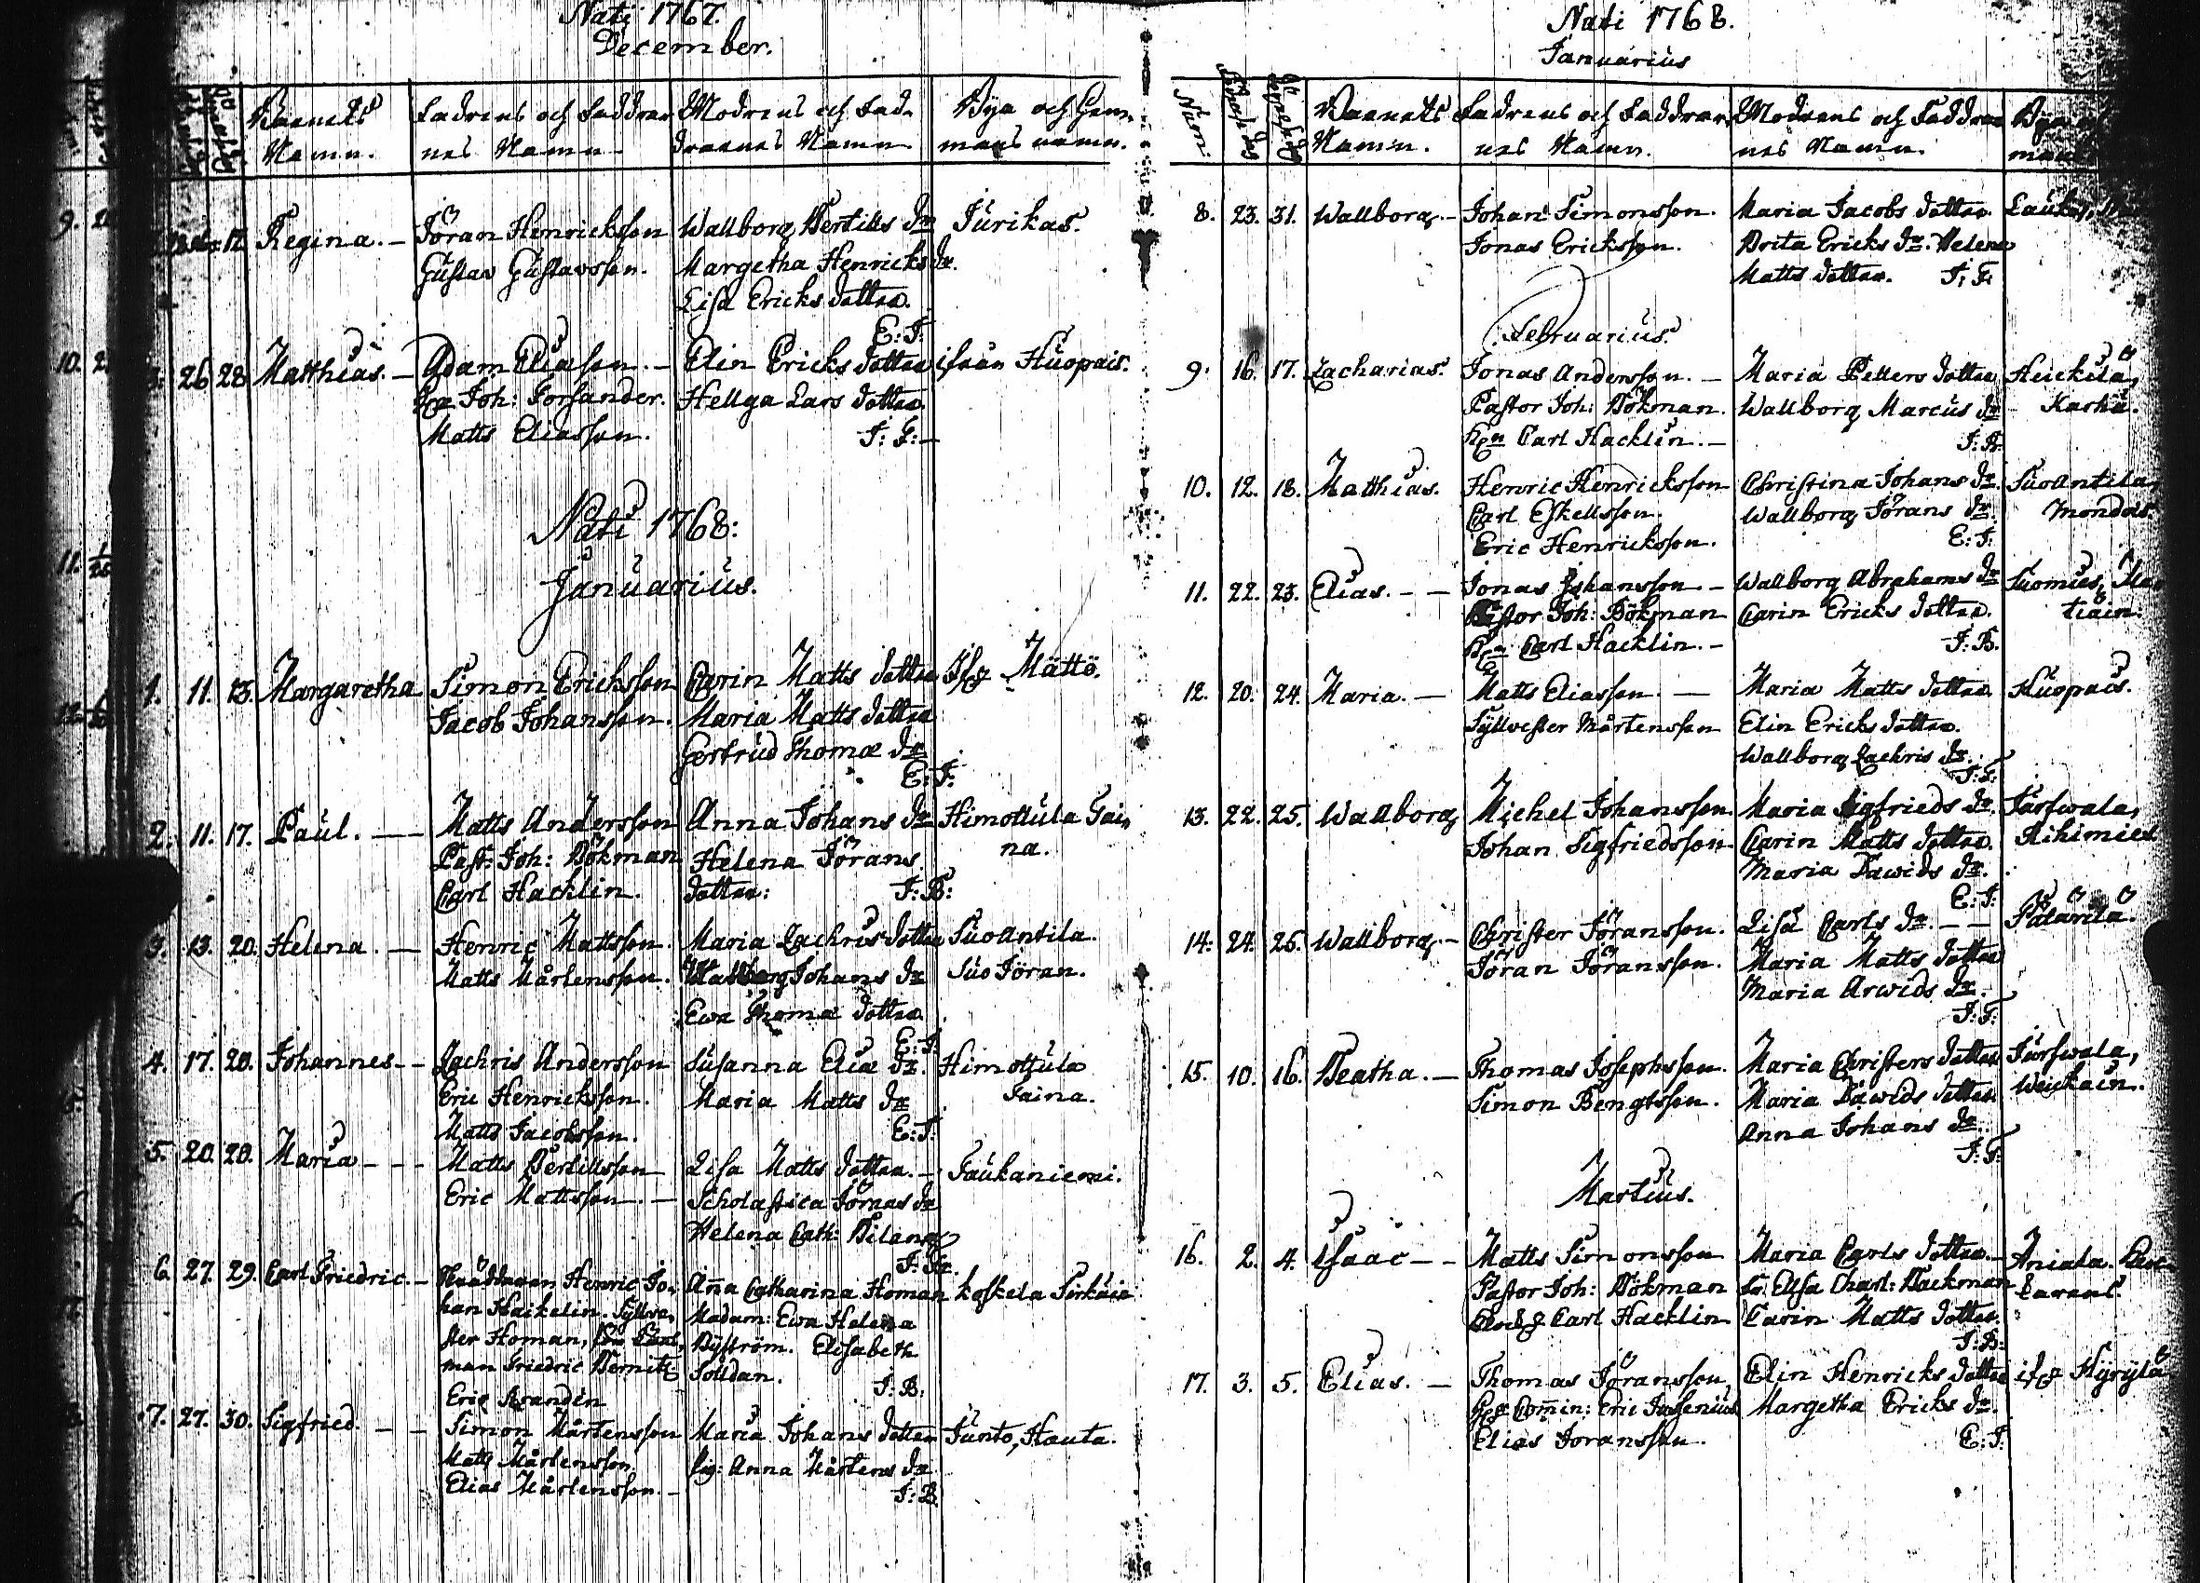 Nati 1767.
December.
Barnets
Namn.
Fadrens och Faddrar
nes Namn
Modrens och Fad-
drarnes Namn
Bya och Hem-
mans namn.
17. Regina. — Jöran Henricksson Wallborg Bertills dr Jurikas.
Gustav Gustavsson. Margetha Henricks dr.
Lisa Ericks dotter.
E: J:
26 28 Matthias. — Adam Eliasson. — Elin Ericks dotter ifrån Huopais.
Joh: Forsander. Hellga Lars dotter.
Matts Eliasson. J: F: —
Nati 1768:
Januarius.
1. 11. 13. Margaretha Simon Ericksson Carin Matts dotter Mättö.
Jacob Johansson. Maria Matts dotter
Gertrud Thomæ dr
E: J:
2. 11. 17. Paul. — Matts Andersson Anna Johans dr Himottula Tai-
Past: Joh: Bökman Helena Jörans na.
Carl Hacklin. dotter: J: B:
3. 13. 20. Helena. — Henric Mattsson. Maria Zachris dotter SuoAntila.
Matts Mårtensson. Wallborg Johans dr Suo Jöran.
Ewa Thomæ dotter.
E: J:
4. 17. 20. Johannes — Zachris Andersson Susanna Eliæ dr. Himottula
Eric Henricksson. Maria Matts dr Taina.
Matts Jacobsson. E: J:
5. 20. 20. Maria — Matts Bertillsson Lisa Matts dotter. — Taukaniemi.
Eric Mattsson. — Scholastica Jonas dr
Helena Cath: Bilang
6. 27. 29. Carl Friedric. — Henric Jo- Anna Catharina Homan koskela Sirkiäin
han Hackelin. Sylve- Madam: Ewa Helena
ster Homan, Byström. Elisabeth
man Friedric Soldan. J: B:
Eric Brandén
7. 27. 30. Sigfried. — Simon Mårtensson Maria Johans dotter Junto, Hauta.
Matts Mårtensson. pig: Anna Mårtens dr
Elias Mårtensson. — J: B.
Nati 1768.
Januarius
Num:
Barnets
Namn.
Fadrens och Faddrar
nes Namn.
Modrens och Faddrar
nes Namn.
8. 23. 31. Wallborg. — Johan Simonsson. Maria Jacobs dotter.
Jonas Ericksson. Brita Ericks dr. Helena
Matts dotter. J: F:
Februarius.
9. 16. 17. Zacharias. Jonas Andersson. — Maria Petters dotter Heickilä,
Pastor Joh: Bökman. Wallborg Marcus dr Karhu.
Carl Hacklin. — J: B.
10. 12. 18. Matthias. Henric Henricksson Christina Johans dr. SuoAntila,
Carl Eskellsson. Wallborg Jörans dr.
Eric Henricksson. E: J:
11. 22. 23. Elias. — Jonas Johansson — Wallborg Abrahams dr Suomies,
Pastor Joh: Bökman Carin Ericks dotter. tiäin.
Carl Hacklin. — J: B.
12. 20. 24. Maria. — Matts Eliasson. — Maria Matts dotter Huopais.
Syllvester Mårtensson Elin Ericks dotter.
Wallborg Zachris dr.
J: F:
13. 22. 25. Wallborg Michel Johansson. Maria Sigfrieds dr. Järfwala,
Johan Sigfriedsson Carin Matts dotter. Rihimies
Maria Dawids dr.
E: J:
14: 24. 26. Wallborg. — Christer Jöransson. Lisa Carls dr. —
Jöran Jöransson. Maria Matts dotter
Maria Arwids dr.
J: F:
15. 10. 16. Beatha. — Thomas Josephsson. Maria Christers dotter Järfwala,
Simon Bengtsson. Maria Dawids dotter. Weickain.
Anna Johans dr.
J: F:
Martius.
16. 2. 4. Isaac — Matts Simonsson Maria Carls dotter —
Pastor Joh: Bökman Elisa Charl: Backman
Carl Hacklin Carin Matts dotter.
J: B:
17. 3. 5. Elias. — Thomas Jöransson, Elin Henricks dotter Hyrylä
Comin: Eric Margetha Ericks dr.
Elias Joransson. E: J: